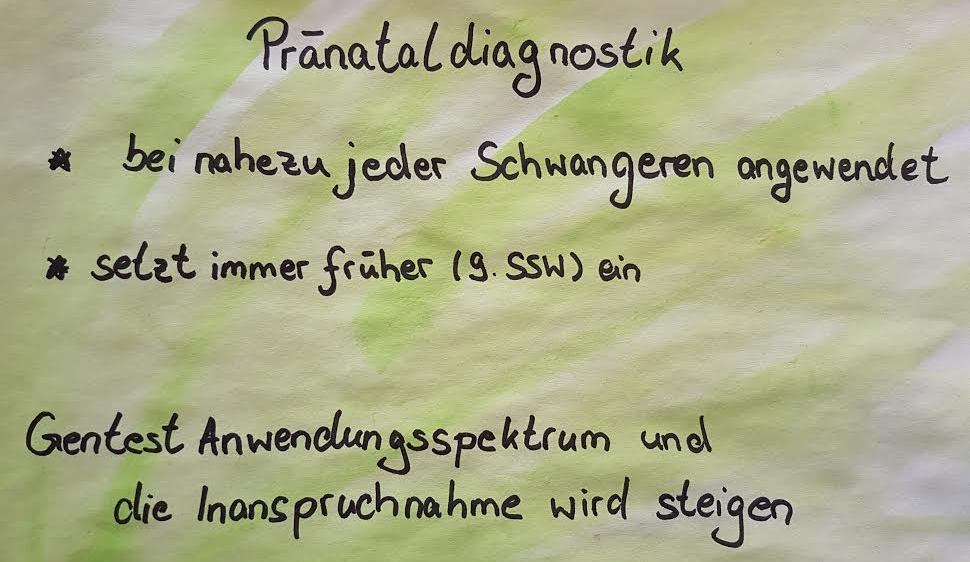 Pränataldiagnostik
* bei nahezu jeder Schwangeren angewendet
* setzt immer früher (9. SSW) ein
Gentest Anwendungsspektrum und
die Inanspruchnahme wird steigen